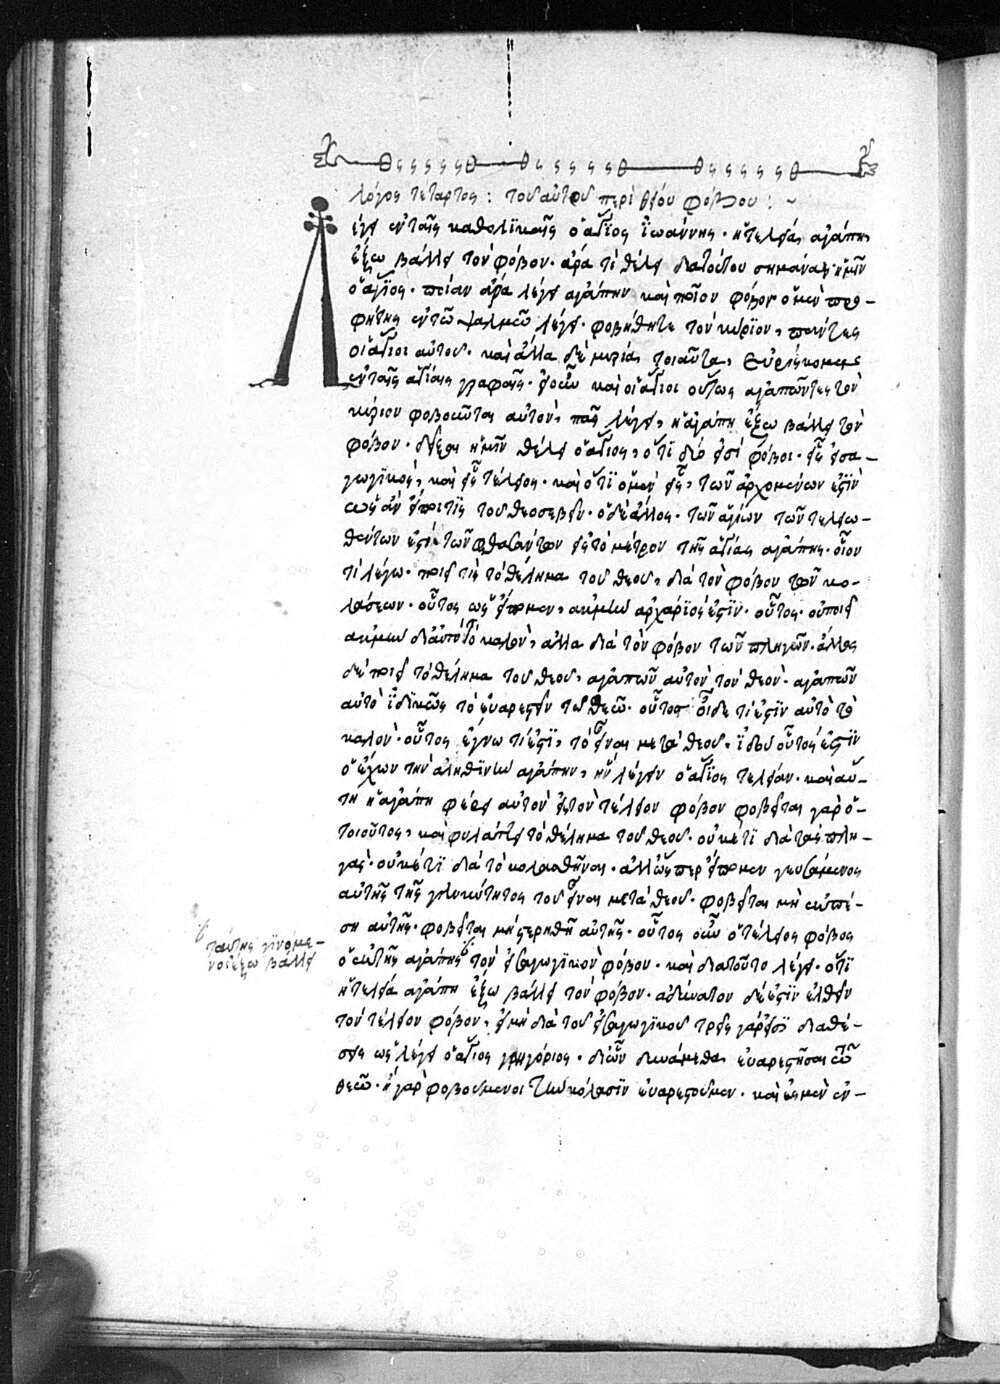 λόγος τέταρτος : τοῦ αὐτοῦ περὶ θείου φόβου : ~
Λέγει ἐν ταῖς καθολικαῖς ὁ ἅγιος ἰωάννης· ἡ τελεία ἀγάπη
ἔξω βάλλει τὸν φόβον· ἄρα τί θέλει διὰ τούτου σημάναι ἡμῖν
ὁ ἅγιος· ποίαν ἄρα λέγει ἀγάπην καὶ ποῖον φόβον· ὁ μὲν προ-
φήτης ἐν τῶ ψαλμῶ λέγει· φοβήθητε τὸν κύριον, πάντες
οἱ ἅγιοι αὐτοῦ· καὶ ἄλλα δὲ μυρία τοιαῦτα, εὑρίσκομεν
ἐν ταῖς ἁγίαις γραφαῖς· εἰ οὖν καὶ οἱ ἅγιοι οὕτως ἀγαπῶντες τὸν
κύριον φοβοῦνται αὐτὸν, πῶς λέγει, ἡ ἀγάπη ἔξω βάλλει τὸν
φόβον· δεῖξαι ἡμῖν θέλει ὁ ἅγιος, ὅτι δύο εἰσὶ φόβοι· εἷς εἰσα-
γωγικὸς, καὶ εἷς τέλειος· καὶ ὅτι ὁ μὲν εἷς, τῶν ἀρχομένων ἐστὶν
ὡς ἂν εἴποι τίς τοῦ θεοσεβεῖν· ὁ δὲ ἄλλος· τῶν ἁγίων τῶν τελειω-
θέντων ἐστὶ τῶν φθασάντων εἰς τὸ μέτρον τῆς ἁγίας ἀγάπης· οἷον
τί λέγω· ποιεῖ τίς τὸ θέλημα τοῦ θεοῦ, διὰ τὸν φόβον τῶν κο-
λάσεων· οὗτος ὡς εἴπομεν, ἀκμὴν ἀρχάριός ἐστιν· οὗτος· οὐ ποιεῖ
ἀκμὴν δι αὐτὸ τὸ καλὸν, ἀλλὰ διὰ τὸν φόβον τῶν πληγῶν· ἄλλος
δὲ ποιεῖ τὸ θέλημα τοῦ θεοῦ, ἀγαπῶν αὐτὸν τὸν θεὸν· ἀγαπῶν
αὐτὸ ἰδικῶς τὸ εὐαρεστεῖν τῶ θεῶ· οὗτος οἶδε τί ἐστιν αὐτὸ τὸ
καλὸν· οὗτος ἔγνω τί ἐστι, τὸ εἶναι μετὰ θεοῦ, ἰδοὺ οὗτός ἐστιν
ὁ ἔχων τὴν ἀληθινὴν ἀγάπην, ἣν λέγει ὁ ἅγιος τελείαν· καὶ αὕ-
τη ἡ ἀγάπη φέρει αὐτὸν εἰς τὸν τέλειον φόβον φοβεῖται γὰρ ὁ
τοιοῦτος, καὶ φυλάττει τὸ θέλημα τοῦ θεοῦ· οὐκέτι διὰ τὰς πλη-
γάς· οὐκέτι διὰ τὸ κολασθῆναι· ἀλλ ὥσπερ εἴπομεν γευσάμενος
αὐτῆς τῆς γλυκύτητος τοῦ εἶναι μετὰ θεοῦ· φοβεῖται μὴ ἐκπέ-
ση αὐτῆς· φοβεῖται μὴ στερηθῆ αὐτῆς· οὗτος οὖν ὁ τέλειος φόβος
ὁ ἐκ τῆς ἀγάπης τὸν εἰσαγωγικὸν φόβον· καὶ διὰ τοῦτο λέγει· ὅτι
ταύτης γινόμε-
νος ἔξω βάλλει
ἡ τελεία ἀγάπη ἔξω βάλλει τὸν φόβον· ἀδύνατον δέ ἐστιν ἐλθεῖν
τὸν τέλειον φόβον, εἰ μὴ διὰ τοῦ εἰσαγωγικοῦ τρεῖς γάρ εἰσι διαθέ-
σεις ὡς λέγει ὁ ἅγιος γρηγόριος· δι ὧν δυνάμεθα εὐαρεστῆσαι τῶ
θεῶ· ἢ γὰρ φοβούμενοι τὴν κόλασιν εὐαρεστοῦμεν· καὶ ἐσμὲν ἐν-